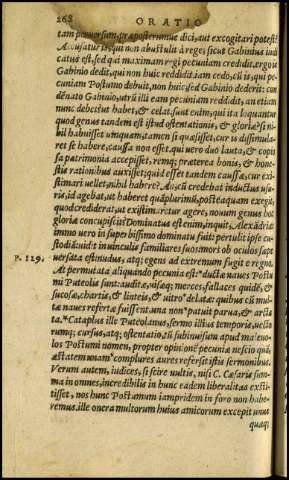 268 ORATIO
tam peruersum, præposterumue dici, aut excogitari potest?
Accusatur is, qui non abstulit à rege, sicut Gabinius iudi
catus est, sed qui maximam regi pecuniam credidit. ergo ii
Gabinio dedit, qui non huic reddidit. iam cedo, cũ is, qui pe-
cuniam Postumo debuit, non huic, sed Gabinio dederit: con
dẽnato Gabinio, utrũ illi eam pecuniam reddidit, an etiam
nunc debetur? habet, & celat. sunt enim, qui ita loquantur
quod genus tandem est istud ostentationis, & gloriæ? si ni-
hil habuisset unquam, tamen si quæsisset, cur is dissimula-
ret se habere, caussa non esset. qui uero duo lauta, & copio
sa patrimonia accepisset, remq; præterea bonis, & hone-
stis rationibus auxisset; quid esset tandem caussæ, cur exi-
stimari uellet, nihil habere? An, cũ credebat inductus usu-
ris, id agebat, ut haberet quàm plurimũ, postea quàm exegit,
quod crediderat, ut existimaretur egere, nouum genus hoc
gloriæ concupiscit? Dominatus est enim, inquit, Alexãdriæ:
immo uero in superbissimo dominatu fuit: pertulit ipse cu-
stodiã: uidit in uinculis familiares suos: mors ob oculos sæpe
P. 129. uersata est: nudus, atq; egens ad extremum fugit è regno.
At permutata aliquando pecunia est: ductæ naues Postu
mi Puteolis sunt: auditæ, uisæq; merces, fallaces quidẽ, &
fucosæ, chartis, & linteis, & uitro delatæ: quibus cũ mul-
tæ naues refertæ fuissent, una non patuit parua, &
Cataplus ille Puteolanus, sermo illius temporis, uecto
rumq; cursus, atq; ostentatio, tũ subinuisum apud maleuo-
los Postumi nomen, propter opinionẽ pecuniæ nescio quã,
æstatem unam complures aures refersit istis sermonibus.
Verum autem, iudices, si scire uultis, nisi C. Cæsaris sum-
ma in omnes, incredibilis in hunc eadem liberalitas exsti-
tisset, nos hunc Postumum iampridem in foro non habe-
remus. ille onera multorum huius amicorum excepit unus
quæq;